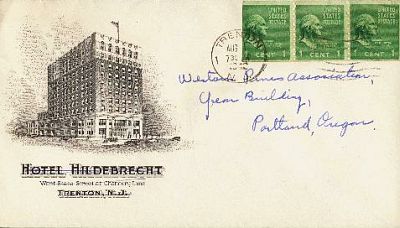 UNITED STATES POSTAGE
1 CENT 1
UNITED STATES POSTAGE
1 CENT 1
UNITED STATES POSTAGE
1 CENT 1
TRENTON
AUG
1
N.J.
Western Pines Association,
Yeon Building,
Portland, Oregon.
HOTEL HILDEBRECHT
West State Street at Chancery Lane
TRENTON, N.J.